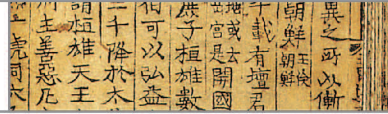 異之所以慚
朝鮮王儉朝鮮
千載有壇君
地或云岳宮是開國
庶子桓雄數
伯可以弘益
三千降於太
謂桓雄天王
主善惡凡
虎同穴